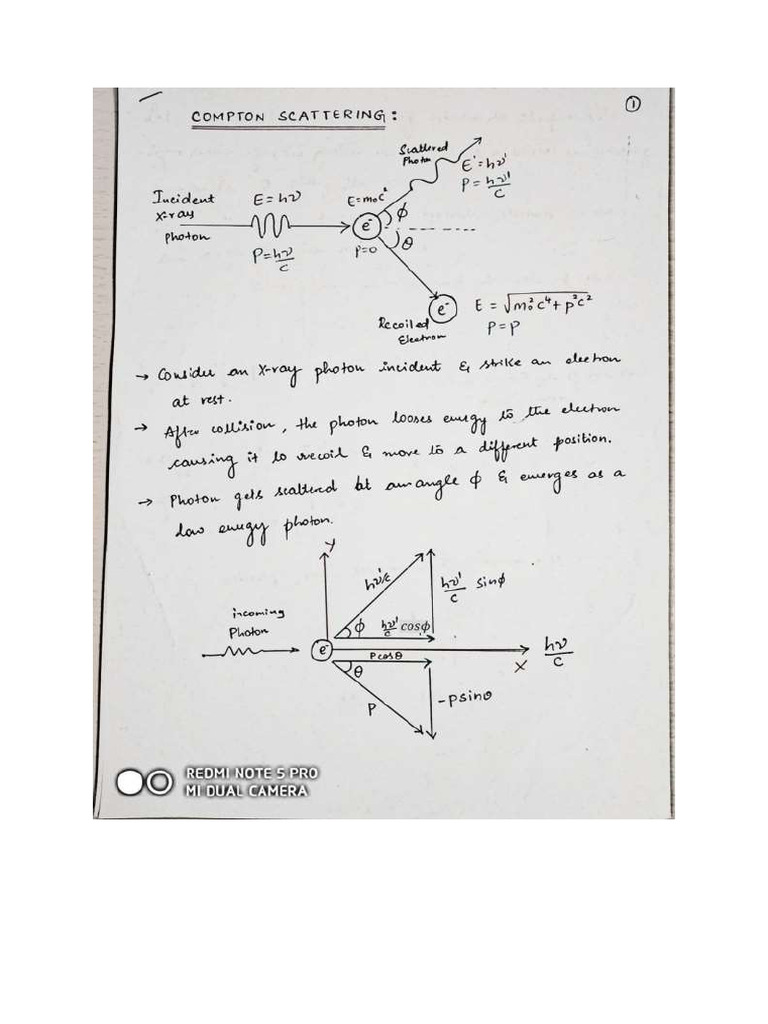 ①
COMPTON SCATTERING:
Scattered
Photon
E'=hν'
P=hν'/c
Incident
X-ray
Photon
E=hν
P=hν/c
E=m₀c²
e⁻
P=0
ϕ
θ
e⁻
Recoiled
Electron
E = √m₀²c⁴+p²c²
P=P
→ Consider an X-ray photon incident & strike an electron
at rest.
→ After collision, the photon looses energy to the electron
causing it to recoil & move to a different position.
→ Photon gets scattered at an angle ϕ & emerges as a
low energy photon.
y
hν'/c
hν'/c sinϕ
incoming
Photon
ϕ
hν'/c cosϕ
e⁻
Pcosθ
X
hν/c
θ
P
-Psinθ
REDMI NOTE 5 PRO
MI DUAL CAMERA